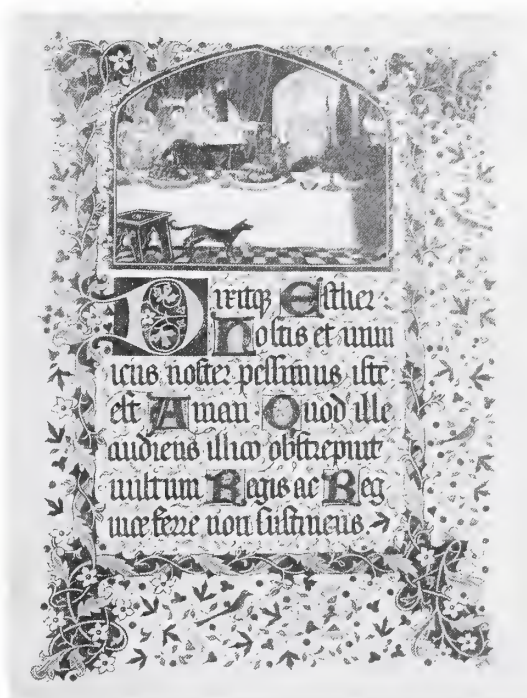 Dixitqꝫ Esther ·
Hostis et inim
icus noster pessimus iste
est Aman · Quod ille
audiens illico obstrepuit
uultum Regis ac Reg
inæ ferre non sustinens